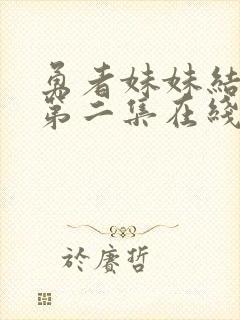 勇者妹妹結
第二集在綫
於賡哲